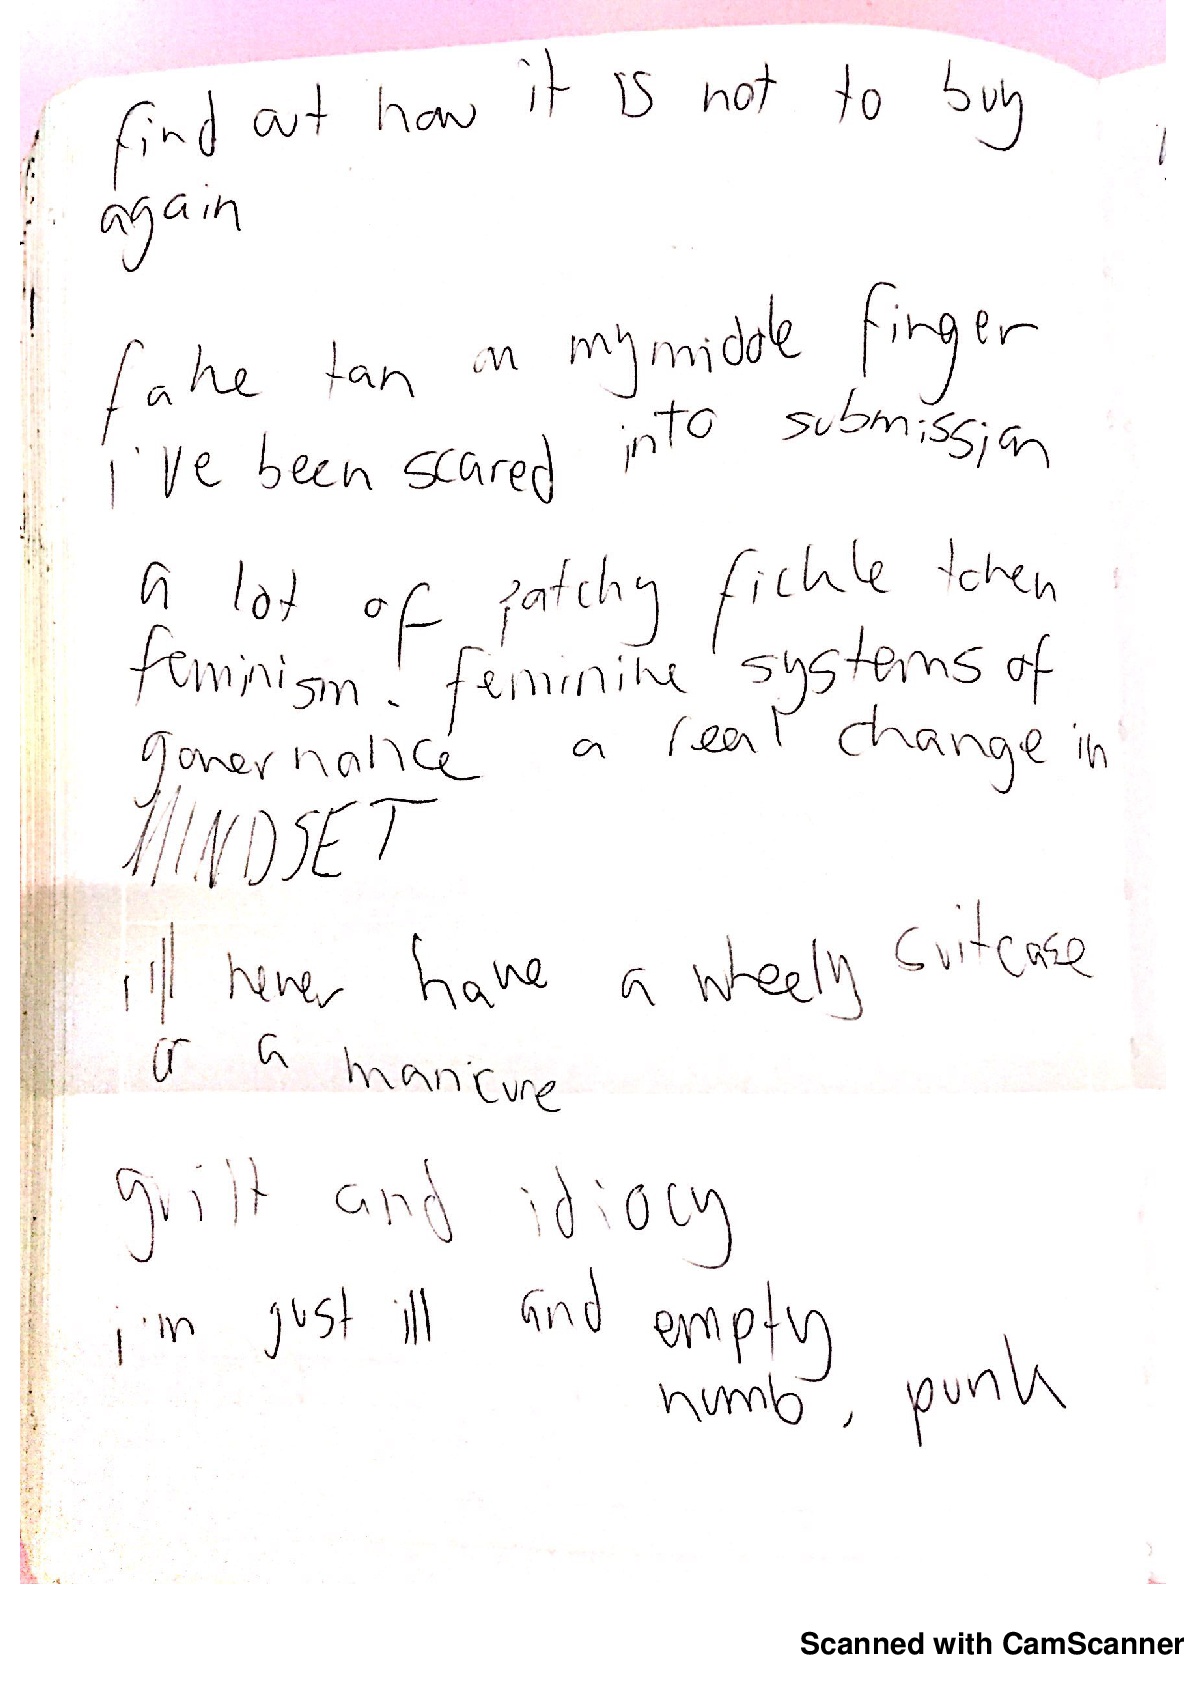 find out how it is not to buy
again
fake tan on my middle finger
i've been scared into submission
a lot of patchy fickle token
feminism. feminine systems of
governance a real change in
MINDSET
i'll never have a wheely suitcase
or a manicure
guilt and idiocy
i'm just ill and empty
numb, punk
Scanned with CamScanner